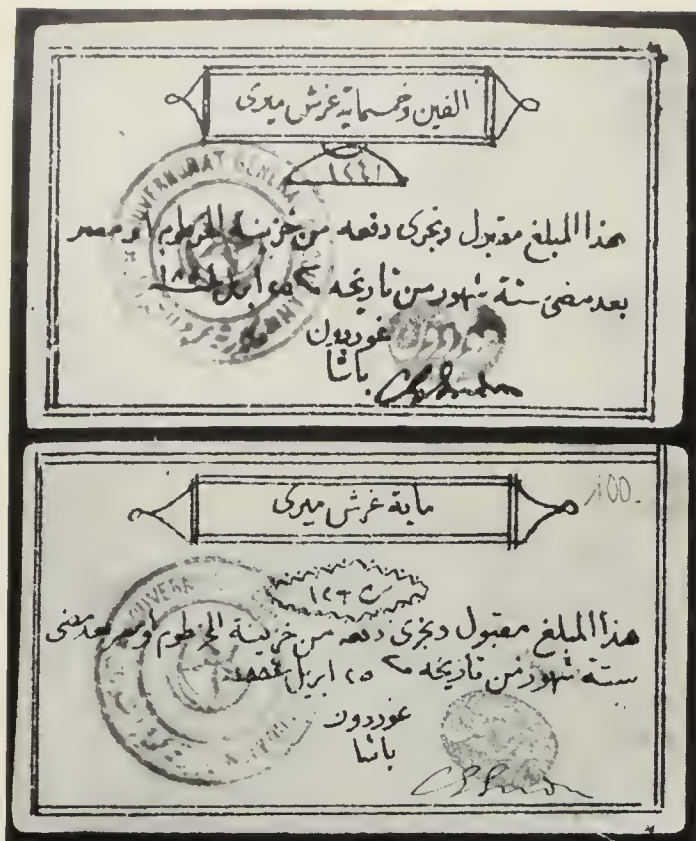 الفين وخمسماية غرش ميرى
GOUVERNORAT GENERA
هذا المبلغ مقبول ويجرى دفعه من خزينة الخرطوم او مصر
بعد مضى ستة شهور من تاريخه ٢٥ ابريل
غوردون
باشا
ماية غرش ميرى
100.
هذا المبلغ مقبول ويجرى دفعه من خزينة الخرطوم او مصر بعد مضى
ستة شهور من تاريخه ٢٥ ابريل ١٨٨٤
غوردون
باشا